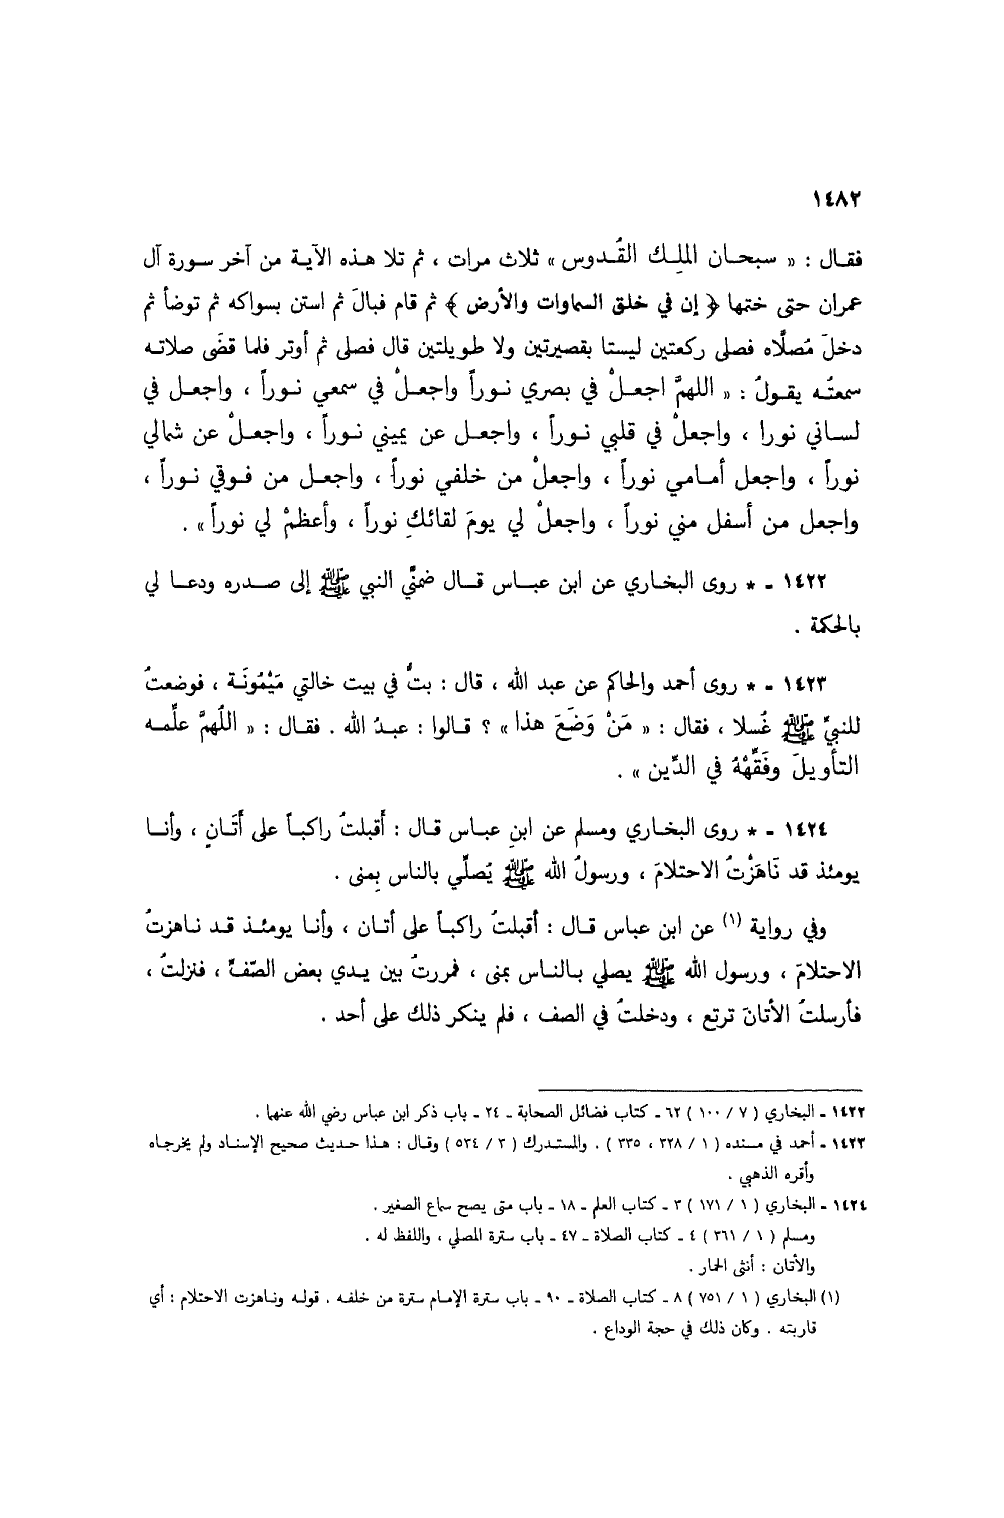 ١٤٨٢
فقـال : « سبحـان الملِـك القُـدوس » ثلاث مرات ، ثم تلا هـذه الآيـة من آخر سـورة آل
عمران حتى ختمها ﴿ إن في خلق السماوات والأرض ﴾ ثم قام فبالَ ثم استن بسواكه ثم توضأ ثم
دخلَ مُصلَّاه فصلى ركعتين ليستا بقصيرتين ولا طويلتين قال فصلى ثم أوتر فلما قضَى صلاتـه
سمعتُـه يقـولُ : « اللهمَّ اجعـلْ في بصري نـوراً واجعـلْ في سمعي نـوراً ، واجعـل في
لسـاني نورا ، واجعلْ في قلبي نـوراً ، واجعـل عن يميني نـوراً ، واجعـلْ عن شمالي
نوراً ، واجعل أمـامي نوراً ، واجعلْ من خلفي نوراً ، واجعـل من فـوقي نـوراً ،
واجعل من أسفل مني نوراً ، واجعلْ لي يومَ لقائكِ نوراً ، وأعظمْ لي نوراً » .
١٤٢٢ ـ * روى البخـاري عن ابن عبـاس قـال ضمنَّي النبي ﷺ إلى صـدره ودعـا لي
بالحكمة .
١٤٢٣ ـ * روى أحمد والحاكم عن عبد الله ، قال : بتُّ في بيت خالتي مَيْمُونَـة ، فوضعتُ
للنبيِّ ﷺ غُسلا ، فقال : « مَنْ وَضَعَ هذا » ؟ قـالوا : عبـدُ الله . فقـال : « اللُهمَّ علِّمـه
التأويلَ وفَقِّهْهُ في الدِّين » .
١٤٢٤ ـ * روى البخاري ومسلم عن ابنِ عبـاس قال : أَقبلتُ راكبـاً على أَتَـانٍ ، وأنـا
يومئذ قد نَاهَزْتُ الاحتلامَ ، ورسولُ الله ﷺ يُصلِّي بالناس بِمنى .
وفي رواية (١) عن ابن عباس قـال : أقبلتُ راكبـاً على أتـان ، وأنـا يومئـذ قـد نـاهزتُ
الاحتلامَ ، ورسول الله ﷺ يصلي بـالنـاس بمنى ، فمررتُ بين يـدي بعض الصّفِّ ، فنزلتُ ،
فأرسلتُ الأتانَ ترتع ، ودخلتُ في الصف ، فلم ينكر ذلك على أحد .
١٤٢٢ ـ البخاري ( ٧ / ١٠٠ ) ٦٢ ـ كتاب فضائل الصحابة ـ ٢٤ ـ باب ذكر ابن عباس رضي الله عنهما .
١٤٢٣ ـ أحمد في مسنده ( ١ / ٣٢٨ ، ٣٣٥ ) . والمستدرك ( ٣ / ٥٣٤ ) وقال : هـذا حـديث صحيح الإسنـاد ولم يخرجـاه
وأقره الذهبي .
١٤٢٤ ـ البخاري ( ١ / ١٧١ ) ٣ ـ كتاب العلم ـ ١٨ ـ باب متى يصح سماع الصغير .
ومسلم ( ١ / ٣٦١ ) ٤ ـ كتاب الصلاة ـ ٤٧ ـ باب سترة المصلي ، واللفظ له .
والأتان : أنثى الحمار .
(١) البخاري ( ١ / ٧٥١ ) ٨ ـ كتاب الصلاة ـ ٩٠ ـ باب سترة الإمـام سترة من خلفـه . قولـه ونـاهزت الاحتلام : أي
قاربته . وكان ذلك في حجة الوداع .